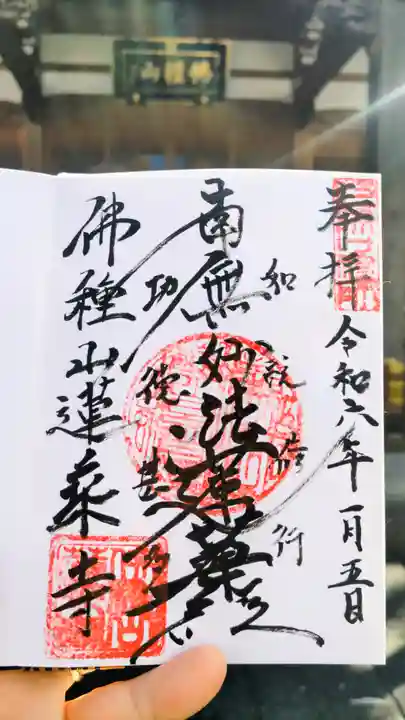 佛種山
奉拝 令和六年一月五日
如説修行
南無妙法蓮華経
功徳甚多
佛種山蓮 寺